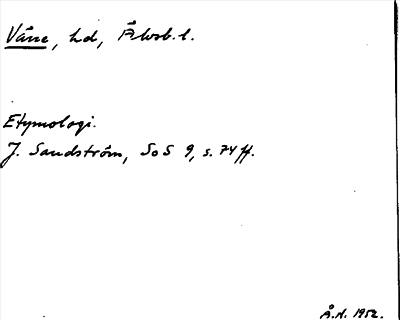 Våne, hd, Älvsb. l.
Etymologi.
J. Sandström, SoS 9, s. 74 ff.
Å.H. 1952.